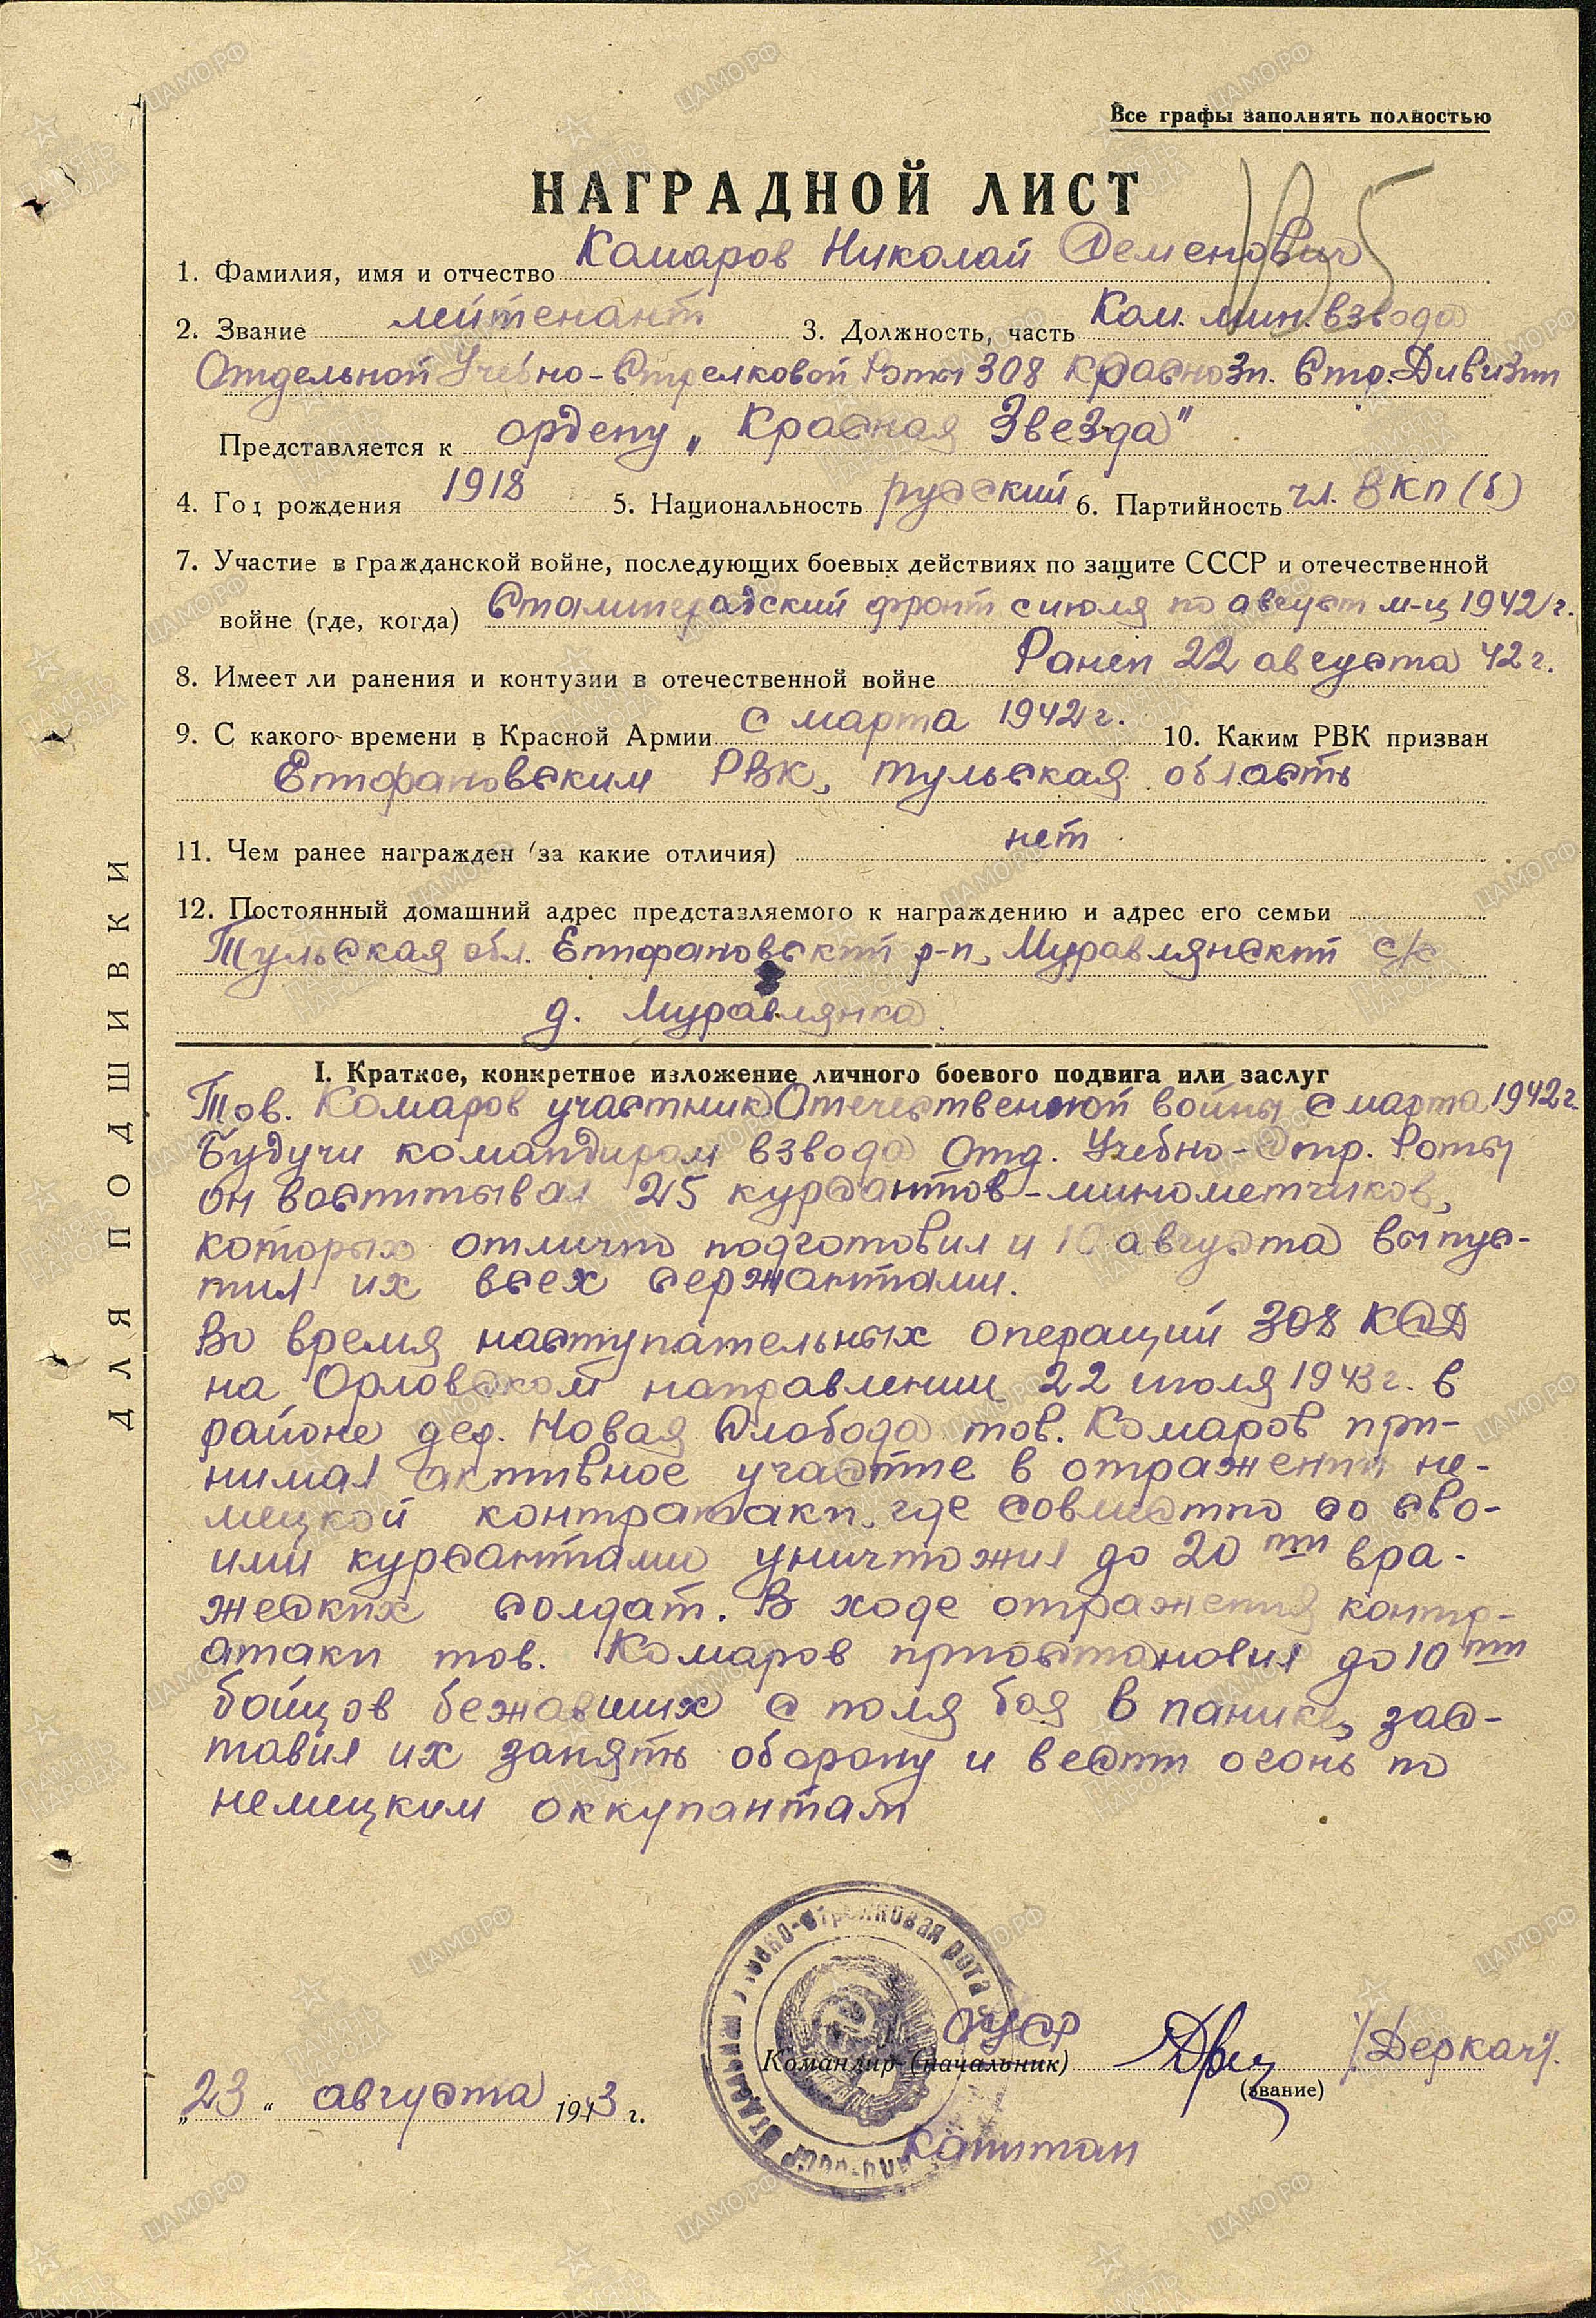 Все графы заполнять полностью
НАГРАДНОЙ ЛИСТ
1. Фамилия, имя и отчество Комаров Николай Семенович
2. Звание лейтенант 3. Должность, часть Ком. мин. взвода
Отдельной Учебно-Стрелковой Роты 308 Краснозн. Стр. Дивизии
Представляется к ордену „Красная Звезда"
4. Год рождения 1918 5. Национальность русский 6. Партийность чл. ВКП(б)
7. Участие в гражданской войне, последующих боевых действиях по защите СССР и отечественной
войне (где, когда) Сталинградский фронт с июля по август м-ц 1942 г.
8. Имеет ли ранения и контузии в отечественной войне Ранен 22 августа 42 г.
9. С какого времени в Красной Армии с марта 1942 г. 10. Каким РВК призван
Епифановским РВК, Тульская область
11. Чем ранее награжден (за какие отличия) нет
12. Постоянный домашний адрес представляемого к награждению и адрес его семьи
Тульская обл. Епифановский р-н, Муравлянский с/с
д. Муравлянка
I. Краткое, конкретное изложение личного боевого подвига или заслуг
Тов. Комаров участник Отечественной войны с марта 1942 г.
Будучи командиром взвода Отд. Учебно-Стр. Роты
он воспитывал 25 курсантов-минометчиков,
которых отлично подготовил и 10 августа выпус-
тил их всех сержантами.
Во время наступательных операций 308 КСД
на Орловском направлении 22 июля 1943 г. в
районе дер. Новая Слобода тов. Комаров при-
нимал активное участие в отражении не-
мецкой контратаки, где совместно со сво-
ими курсантами уничтожил до 20ти вра-
жеских солдат. В ходе отражения контр-
атаки тов. Комаров приостановил до 10ти
бойцов бежавших с поля боя в панике, зас-
тавил их занять оборону и вести огонь по
немецким оккупантам
ДЛЯ ПОДШИВКИ
Отдельная Учебно-стрелковая рота
НКО-СССР
ОУСР
Командир (начальник) /Деркач/.
(звание)
капитан
„23" августа 1943 г.
ЦАМО.РФ
ПАМЯТЬ НАРОДА